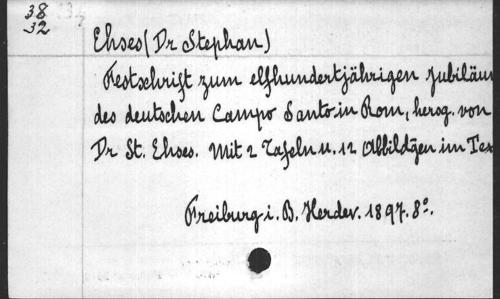 38
32
Ehses (Dr Stephan)
Festschrift zum elfhundertjährigen Jubiläum
des deutschen Campo Santo in Rom, hersg. von
Dr St. Ehses. Mit 2 Tafeln u. 12 Abbildgen im Tex
Freiburg i. B. Herder. 1897. 8º.